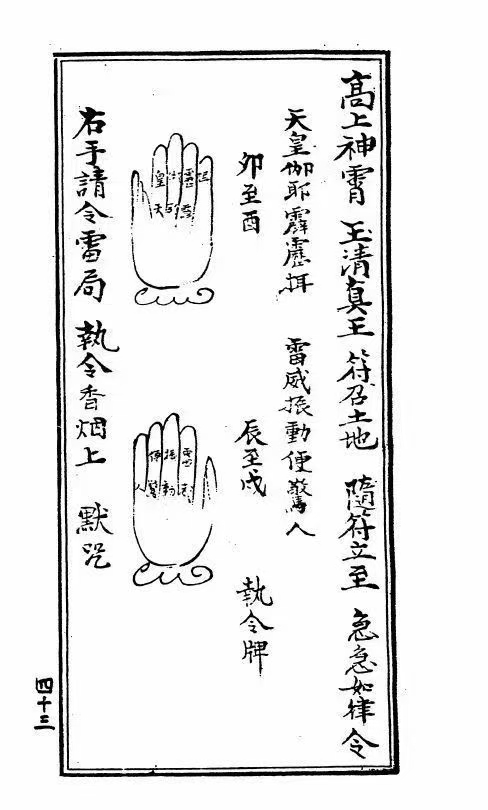 高上神霄 玉清真王 符召土地 隨符立至 急急如律令
天皇伽耶霹靂揖 雷威振動便驚人
卯至酉
辰至戌
執令牌
皇 霹
天 耶 靂
便 振 雷
人 驚 動 威
右手請令雷局 執令香烟上 默咒
四十三